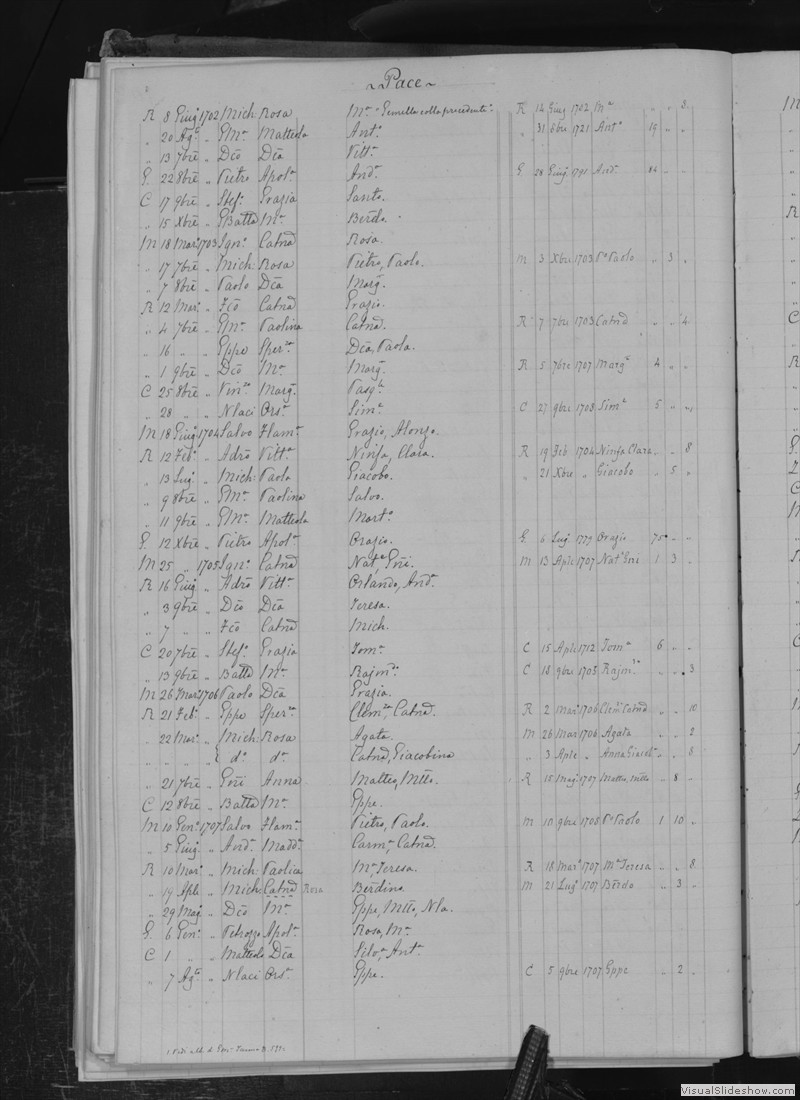 ~Pace~
R 8 Giug 1702 Mich: Rosa Mª Gemella colla precedente. R 14 Giug 1702 Mª „ „ 3
„ 20 Agº „ GMª Matteola Antº „ 31 8bre 1721 Antº 19 „ „
„ 13 7bre „ Dco Dca Vittª
G. 22 8bre „ Pietro Apolª Andª G 28 Giug 1791 Andª 84 „ „
C 17 9bre „ Stefº Grazia Santo.
„ 15 Xbre „ GBatta Mª Berdo.
M 18 Mar: 1703 Ignº Catnd Rosa.
„ 17 7bre „ Mich: Rosa Pietro, Paolo. M 3 Xbre 1703 Pº Paolo „ 3 „
„ 7 8bre „ Paolo Dca Marg.
R 12 Mar: „ Fco Catnd Grazio.
„ 4 7bre „ GMª Paolina Catnd. R 7 7bre 1703 Catnd „ „ 4
„ 16 „ „ Gppe Sperza Dca, Paola.
„ 1 9bre „ Dco Mª Marg. R 5 7bre 1707 Margª 4 „ „
C 25 8bre „ Vinzo Marg. Pasqle
„ 28 „ „ Nlaci Orsª Simª C 27 9bre 1708 Simª 5 „ „
M 18 Giug 1704 Salvo Flamª Grazio, Alonzo.
R 12 Feb: „ Adro Vittª Ninfa, Clara. R 19 Feb 1704 Ninfa Clara „ „ 8
„ 13 Lug. „ Mich: Paola Giacobo. „ 21 Xbre „ Giacobo „ 5 „
„ 9 8bre „ GMª Paolina Salvo.
„ 11 9bre „ GMª Matteola Martº
G. 12 Xbre „ Pietro Apolª Orazio. G 6 Lug 1779 Orazio 75 „ „
M 25 „ 1705 Ignº Catnd Natle Gni. M 13 Aple 1707 Natle Gni 1 3 „
R 16 Giug „ Adro Vittª Orlando, Andª
„ 3 9bre „ Dco Dca Teresa.
„ 7 „ „ Fco Catnd Mich.
C 20 7bre „ Stefº Grazia Tomº C 15 Aple 1712 Tomº 6 „ „
„ 13 9bre „ Batta Mª Rajmdº C 18 9bre 1705 Rajmdº „ „ 3
M 26 Mar: 1706 Paolo Dca Grazia.
R 21 Feb: „ Gppe Sperza Clemza, Catnd. R 2 Mar: 1706 Clemza Catnd „ „ 10
„ 22 Mar: „ Mich: Rosa Agata. M 26 Mar 1706 Agata „ „ 2
„ „ „ { dº dª Catnd, Giacobina „ 3 Aple „ „ „ 8
„ 21 7bre „ Gni Anna Matteo, Mtto. R 15 Mag: 1707 Matteo, Mtto „ 8 „
C 12 8bre „ Batta Mª Gppe.
M 10 Gen: 1707 Salvo Flamª Pietro, Paolo. M 10 9bre 1708 Pº Paolo 1 10 „
„ 5 Giug. „ Andª Maddª Carmª Catnd.
R 10 Mar: „ Mich: Paolica Mª Teresa. R 18 Mar: 1707 Mª Teresa „ „ 8
„ 19 Aple „ Mich: Catnd Rosa Berdina M 21 Lug: 1707 Brdo „ 3 „
„ 29 Mag „ Dco Mª Gppe, Mtto, Nla.
G. 6 Gen: „ Petrozzo Apolª Rosa, Mª
C 1 „ „ Matteolo Dca Silvª Antº
„ 7 Agº „ Nlaci Orsª Gppe. C 5 9bre 1707 Gppe „ 2 „
VisualSlideshow.com